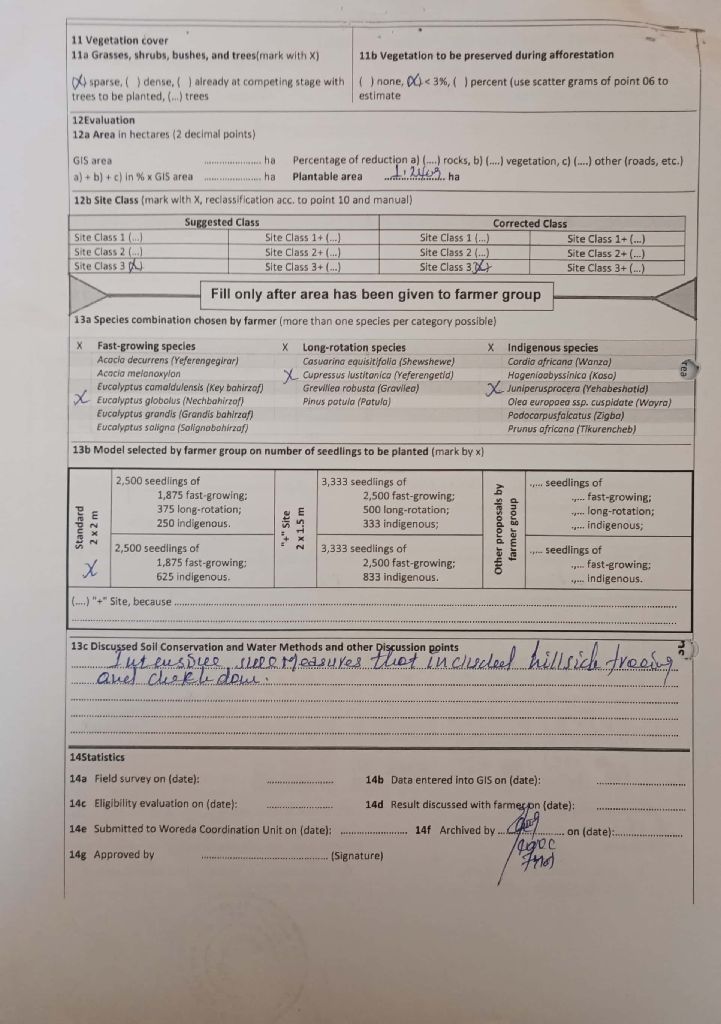 11 Vegetation cover
11a Grasses, shrubs, bushes, and trees(mark with X)
(X) sparse, ( ) dense, ( ) already at competing stage with
trees to be planted, (...) trees
11b Vegetation to be preserved during afforestation
( ) none, (X) < 3%, ( ) percent (use scatter grams of point 06 to
estimate
12Evaluation
12a Area in hectares (2 decimal points)
GIS area .................. ha Percentage of reduction a) (....) rocks, b) (....) vegetation, c) (....) other (roads, etc.)
a) + b) + c) in % x GIS area .................. ha Plantable area ha
12b Site Class (mark with X, reclassification acc. to point 10 and manual)
Suggested Class Corrected Class
Site Class 1 (...) Site Class 1+ (...) Site Class 1 (...) Site Class 1+ (...)
Site Class 2 (...) Site Class 2+ (...) Site Class 2 (...) Site Class 2+ (...)
Site Class 3 (X) Site Class 3+ (...) Site Class 3 (X) Site Class 3+ (...)
Fill only after area has been given to farmer group
13a Species combination chosen by farmer (more than one species per category possible)
X Fast-growing species
Acacia decurrens (Yeferengegirar)
Acacia melanoxylon
Eucalyptus camaldulensis (Key bahirzaf)
X Eucalyptus globolus (Nechbahirzaf)
Eucalyptus grandis (Grandis bahirzaf)
Eucalyptus saligna (Salignabahirzaf)
X Long-rotation species
Casuarina equisitifolia (Shewshewe)
X Cupressus lustitanica (Yeferengetid)
Grevillea robusta (Gravilea)
Pinus patula (Patula)
X Indigenous species
Cordia africana (Wanza)
Hageniaabyssinica (Koso)
X Juniperusprocera (Yehabeshatid)
Olea europaea ssp. cuspidate (Wayra)
Podocarpusfalcatus (Zigba)
Prunus africana (Tikurencheb)
13b Model selected by farmer group on number of seedlings to be planted (mark by x)
Standard
2 x 2 m
X
2,500 seedlings of
1,875 fast-growing;
375 long-rotation;
250 indigenous.
2,500 seedlings of
1,875 fast-growing;
625 indigenous.
"+" Site
2 x 1.5 m
3,333 seedlings of
2,500 fast-growing;
500 long-rotation;
333 indigenous;
3,333 seedlings of
2,500 fast-growing;
833 indigenous.
Other proposals by
farmer group
.,... seedlings of
.,... fast-growing;
.,... long-rotation;
.,... indigenous;
.,... seedlings of
.,... fast-growing;
.,... indigenous.
(....) "+" Site, because
13c Discussed Soil Conservation and Water Methods and other Discussion points
measures that included hillside
and
14Statistics
14a Field survey on (date): ..................
14b Data entered into GIS on (date): ..................
14c Eligibility evaluation on (date): ..................
14d Result discussed with farmer on (date): ..................
14e Submitted to Woreda Coordination Unit on (date): .................. 14f Archived by on (date):..................
14g Approved by .................. (Signature)